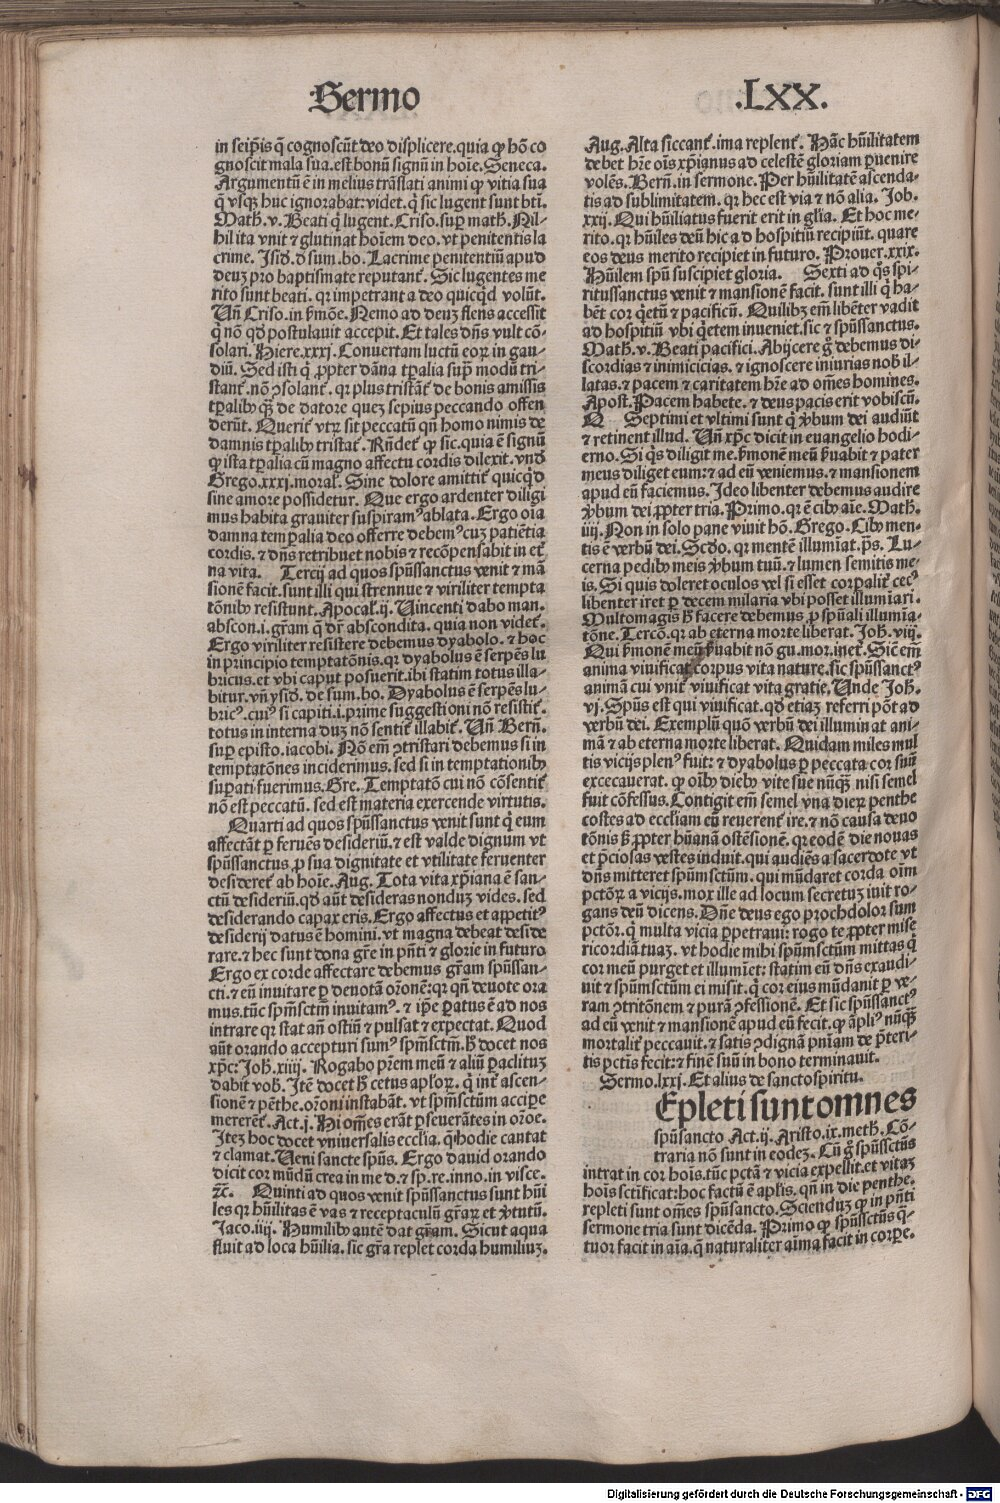 Sermo
.LXX.
in seip̄is q̄ cognoscūt deo displicere. quia ꝙ hō co
gnoscit mala sua. est bonū signū in hoīe. Seneca.
Argumentū ē in melius trāslati animi ꝙ vitia sua
q̄ vsqꝫ huc ignorabat: videt. q̄ sic lugent sunt bti.
Math̄. v. Beati q̄ lugent. Criso. sup̄ math̄. Ni-
hil ita vnit ⁊ glutinat hoīem deo. vt penitentis la
crime. Isid̄. d̄ sum. bo. Lacrime penitentiū apud
deuꝫ pro baptismate reputant᷑. Sic lugentes me
rito sunt beati. qꝛ impetrant a deo quicqͥd volūt.
Vn̄ Criso. in s̄mōe. Nemo ad deuꝫ flens accessit
q̄ nō qd̄ postulauit accepit. Et tales dn̄s vult cō-
solari. Hiere. xxxj. Conuertam luctū eoꝝ in gau-
diū. Sed isti q̄ ꝓpter dāna tꝑalia sup̄ modū tri-
stant᷑. nō ꝯsolant᷑. qꝛ plus tristāt᷑ de bonis amissis
tꝑalibꝰ qꝫ de datore quez sepius peccando offen
derūt. Querit᷑ vtꝝ sit peccatū qn̄ homo nimis de
damnis tꝑalibꝰ tristat᷑. Rn̄det᷑ ꝙ sic. quia ē signū
ꝙ ista tꝑalia cū magno affectu cordis dilexit. vn̄
Grego. xxxj. moral᷑. Sine dolore amittit᷑ quicqͥd
sine amore possidetur. Que ergo ardenter diligi
mus habita grauiter suspiramꝰ ablata. Ergo oīa
damna temꝑalia deo offerre debemꝰ cuꝫ patiētia
cordis. ⁊ dn̄s retribuet nobis ⁊ recōpensabit in et̄
na vita. Tercij ad quos spūssanctus venit ⁊ mā
sionē facit. sunt illi qui strennue ⁊ viriliter tempta
tōnibꝰ resistunt. Apocal᷑. ij. Vincenti dabo man.
abscon. i. gr̄am q̄ dr̄ abscondita. quia non videt᷑.
Ergo viriliter resistere debemus dyabolo. ⁊ hoc
in principio temptatōnis. qꝛ dyabolus ē serpēs lu
bricus. et vbi caput posuerit. ibi statim totus illa-
bitur. vn̄ ysid̄. de sum. bo. Dyabolus ē serpēs lu-
bricꝰ. cuiꝰ si capiti. i. prime suggestioni nō resistit᷑.
totus in interna duꝫ nō sentit᷑ illabit᷑. Vn̄ Bern̄.
sup̄ episto. iacobi. Nō em̄ ꝯtristari debemus si in
temptatōnes inciderimus. sed si in temptationibꝰ
suꝑati fuerimus. Gre. Temptatō cui nō cōsentit᷑
nō est peccatū. sed est materia exercende virtutis.
Quarti ad quos spūssanctus venit sunt q̄ eum
affectāt ꝑ feruēs desideriū. ⁊ est valde dignum vt
spūssanctus ꝓ sua dignitate et vtilitate feruenter
desideret᷑ ab hoīe. Aug. Tota vita xp̄iana ē san-
ctū desideriū. qd̄ aūt desideras nonduꝫ vides. sed
desiderando capax eris. Ergo affectus et appetitꝰ
desiderij datus ē homini. vt magna debeat deside
rare. ⁊ hec sunt dona gr̄e in pn̄ti ⁊ glorie in futuro
Ergo ex corde affectare debemus gr̄am spūssan-
cti. ⁊ eū inuitare ꝑ deuotā oronē: qꝛ qn̄ deuote ora
mus. tūc spm̄sctm̄ inuitamꝰ. ⁊ ip̄e ꝑatus ē ad nos
intrare qꝛ stat an̄ ostiū ⁊ pulsat ⁊ expectat. Quod
aūt orando accepturi sumꝰ spm̄sctm̄. h̄ docet nos
xp̄c: Joh̄. xiiij. Rogabo pr̄em meū ⁊ aliū ꝑaclituꝫ
dabit vob̄. Itē docet h̄ cetus aploꝝ. q̄ int᷑ ascen-
sionē ⁊ pēthe. orōni instabāt. vt spm̄sctum acciꝑe
mererēt᷑. Act. j. Hi om̄es erāt ꝑseuerātes in orōe.
Iteꝫ hoc docet vniuersalis eccl̄ia. q̄ hodie cantat
⁊ clamat. Veni sancte spūs. Ergo dauid orando
dicit cor mūdū crea in me d. ⁊ sp. re. inno. in visce.
⁊c̄. Quinti ad quos venit spūssanctus sunt hūi
les qꝛ hūilitas ē vas ⁊ receptaculū gr̄aꝝ et v̄tutū.
Jaco. iiij. Humilibꝰ autē dat gr̄am. Sicut aqua
fluit ad loca hūilia. sic gr̄a replet corda humiliuꝫ.
Aug. Alta siccant᷑. ima replent᷑. Hāc hūilitatem
debet hr̄e oīs xp̄ianus ad celestē gloriam ꝑuenire
volēs. Bern̄. in sermone. Per hūilitatē ascenda-
tis ad sublimitatem. qꝛ hec est via ⁊ nō alia. Job.
xxij. Qui hūiliatus fuerit erit in gl̄ia. Et hoc me-
rito. qꝛ hūiles deū hic ad hospitiū recipiūt. quare
eos deus merito recipiet in futuro. Prouer. xxix.
Hūilem spū suscipiet gloria. Sexti ad qͦs spi-
ritussanctus venit ⁊ mansionē facit. sunt illi q̄ ha-
bēt cor qͥetū ⁊ pacificū. Quilibꝫ em̄ libēter vadit
ad hospitiū vbi qͥetem inueniet. sic ⁊ spūssanctus.
Math̄. v. Beati pacifici. Abijcere gͦ debemus di-
scordias ⁊ inimicicias. ⁊ ignoscere iniurias nob̄ il-
latas. ⁊ pacem ⁊ caritatem hr̄e ad om̄es homines.
Apost. Pacem habete. ⁊ deus pacis erit vobiscū.
Q Septimi et vltimi sunt q̄ v̄bum dei audiūt
⁊ retinent illud. Vn̄ xp̄c dicit in euangelio hodi-
erno. Si qͥs diligit me. s̄monē meū s̄uabit ⁊ pater
meus diliget eum: ⁊ ad eū veniemus. ⁊ mansionem
apud eū faciemus. Ideo libenter debemus audire
v̄bum dei ꝓpter tria. Primo. qꝛ ē cibꝰ aīe. Math.
iiij. Non in solo pane viuit hō. Grego. Cibꝰ men-
tis ē verbū dei. Scd̄o. qꝛ mentē illumīat. ps̄. Lu-
cerna pedibꝰ meis v̄bum tuū. ⁊ lumen semitis me-
is. Si quis doleret oculos vel si esset corꝑalit᷑ cecꝰ
libenter iret ꝑ decem milaria vbi posset illumīari.
Multomagis h̄ facere debemus ꝓ spūali illumīa-
tōne. Tercō. qꝛ ab eterna morte liberat. Joh̄. viij.
Qui s̄monē meū s̄uabit nō gu. mor. inet᷑. Sic̄ em̄
anima viuificat corpus vita nature. sic spūssanctꝰ
animā cui vnit᷑ viuificat vita gratie. Unde Joh̄.
vj. Spūs est qui viuificat. qd̄ etiaꝫ referri pōt ad
verbū dei. Exemplū quō verbū dei illuminat ani-
mā ⁊ ab eterna morte liberat. Quidam miles mul
tis vicijs plenꝰ fuit: ⁊ dyabolus ꝑ peccata cor suū
excecauerat. ꝙ oībꝰ diebꝰ vite sue nūqꝫ nisi semel
fuit cōfessus. Contigit em̄ semel vna dieꝝ penthe
costes ad eccliam eū reuerent᷑ ire. ⁊ nō causa deuo
tōnis sꝫ ꝓpter hūanā ostēsionē. qꝛ eodē die nouas
et p̄ciosas vestes induit. qui audiēs a sacerdote vt
dn̄s mitteret spūmsctūm. qui mūdaret corda oīm
pctōꝝ a vicijs. mox ille ad locum secretuꝫ iuit ro-
gans deū dicens. Dn̄e deus ego prochdolor sum
pctōr. q̄ multa vicia ꝑpetraui: rogo te ꝓpter mise
ricordiā tuaꝫ. vt hodie mihi spūmsctūm mittas q̄
cor meū purget et illumīet: statim eū dn̄s exaudi-
uit ⁊ spūmsctūm ei misit. q̄ cor eius mūdanit ꝑ ve-
ram ꝯtritōnem ⁊ purā ꝯfessionē. Et sic spūssanctꝰ
ad eū venit ⁊ mansionē apud eū fecit. ꝙ āpliꝰ nūqꝫ
mortalit᷑ peccauit. ⁊ satis ꝯdignā pn̄iam de p̄teri-
tis pctīs fecit: ⁊ finē suū in bono terminauit.
Sermo. lxxj. Et alius de sanctospiritu.
Epleti sunt omnes
spūsancto Act. ij. Aristo. ix. meth̄. Cō-
traria nō sunt in eodeꝫ. Cū gͦ spūssctūs
intrat in cor hoīs. tūc pctā ⁊ vicia expellit. et vitaꝫ
hoīs sctīficat: hoc factū ē apl̄is. qn̄ in die penthe.
repleti sunt om̄es spūsancto. Scienduꝫ ꝙ in pn̄ti
sermone tria sunt dicēda. Primo ꝙ spūssctūs q̄-
tuor facit in aīa. q̄ naturaliter aīma facit in corꝑe.
Digitalisierung gefördert durch die Deutsche Forschungsgemeinschaft - DFG